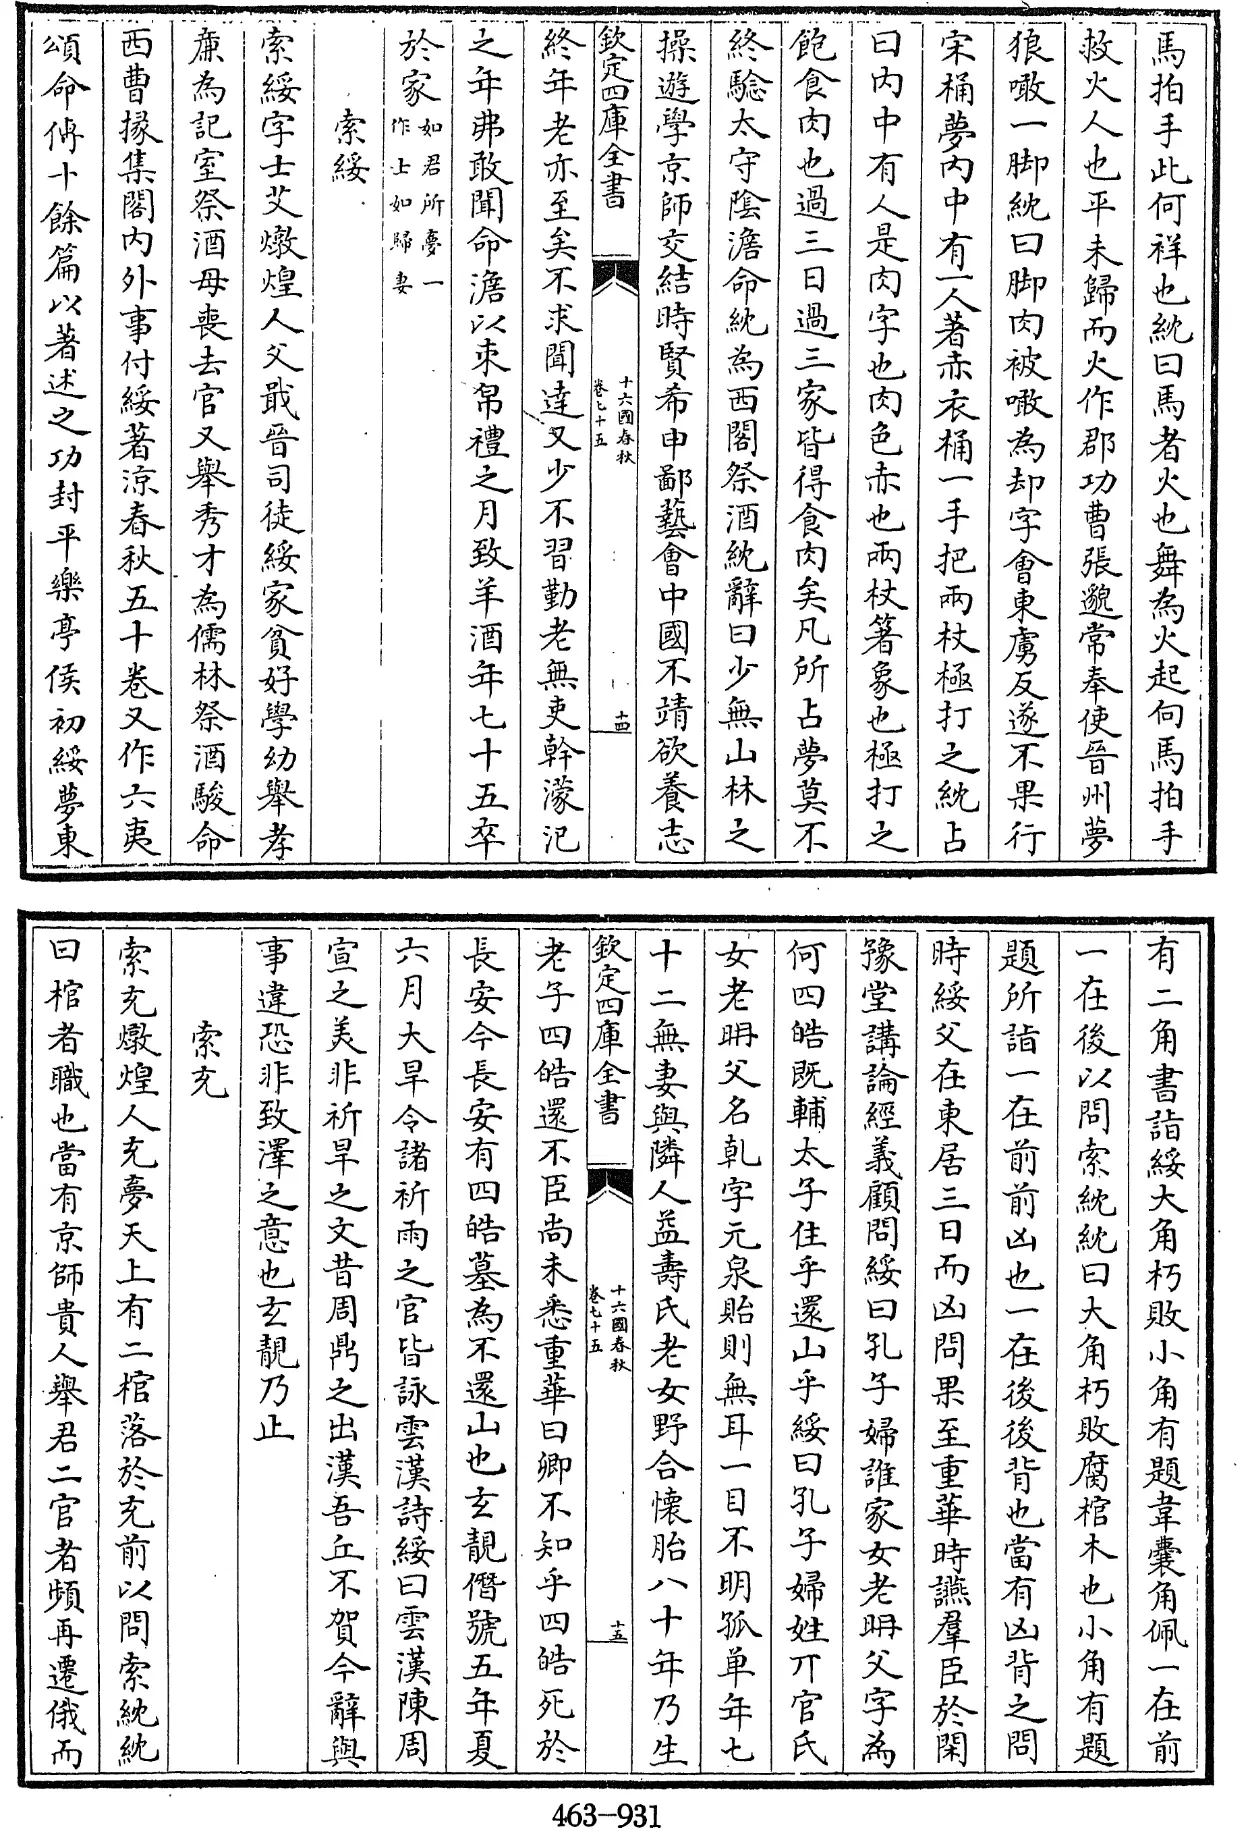 馬拍手此何祥也紞曰馬者火也舞為火起向馬拍手
救火人也平未歸而火作郡功曹張邈常奉使晉州夢
狼噉一脚紞曰脚肉被噉為却字會東虜反遂不果行
宋桶夢内中有一人著赤衣桶一手把兩杖極打之紞占
曰内中有人是肉字也肉色赤也兩杖箸象也極打之
飽食肉也過三日過三家皆得食肉矣凡所占夢莫不
終驗太守陰澹命紞為西閣祭酒紞辭曰少無山林之
操遊學京師交結時賢希申鄙藝會中國不靖欲養志
欽定四庫全書
十六國春秋
卷七十五
十四
終年老亦至矣不求聞達又少不習勤老無吏幹濛汜
之年弗敢聞命澹以束帛禮之月致羊酒年七十五卒
於家如君所夢一
作士如歸妻
索綏
索綏字士艾燉煌人父戢晉司徒綏家貧好學幼舉孝
亷為記室祭酒母喪去官又舉秀才為儒林祭酒駿命
西曹掾集閣内外事付綏著涼春秋五十卷又作六夷
頌命傅十餘篇以著述之功封平樂亭侯初綏夢東
有二角書詣綏大角朽敗小角有題韋囊角佩一在前
一在後以問索紞紞曰大角朽敗腐棺木也小角有題
題所詣一在前前凶也一在後後背也當有凶背之問
時綏父在東居三日而凶問果至重華時讌羣臣於閑
豫堂講論經義顧問綏曰孔子婦誰家女老聃父字為
何四皓既輔太子住乎還山乎綏曰孔子婦姓丌官氏
女老聃父名乹字元泉貽則無耳一目不明孤单年七
十二無妻與隣人益壽氏老女野合懐胎八十年乃生
欽定四庫全書
十六國春秋
卷七十五
十五
老子四皓還不臣尚未悉重華曰卿不知乎四皓死於
長安今長安有四皓墓為不還山也玄靚僭號五年夏
六月大旱令諸祈雨之官皆詠雲漢詩綏曰雲漢陳周
宣之美非祈旱之文昔周鼎之出漢吾丘不賀今辭與
事違恐非致澤之意也玄靚乃止
索充
索充燉煌人充夢天上有二棺落於充前以問索紞紞
曰棺者職也當有京師貴人舉君二官者頻再遷俄而
463-931